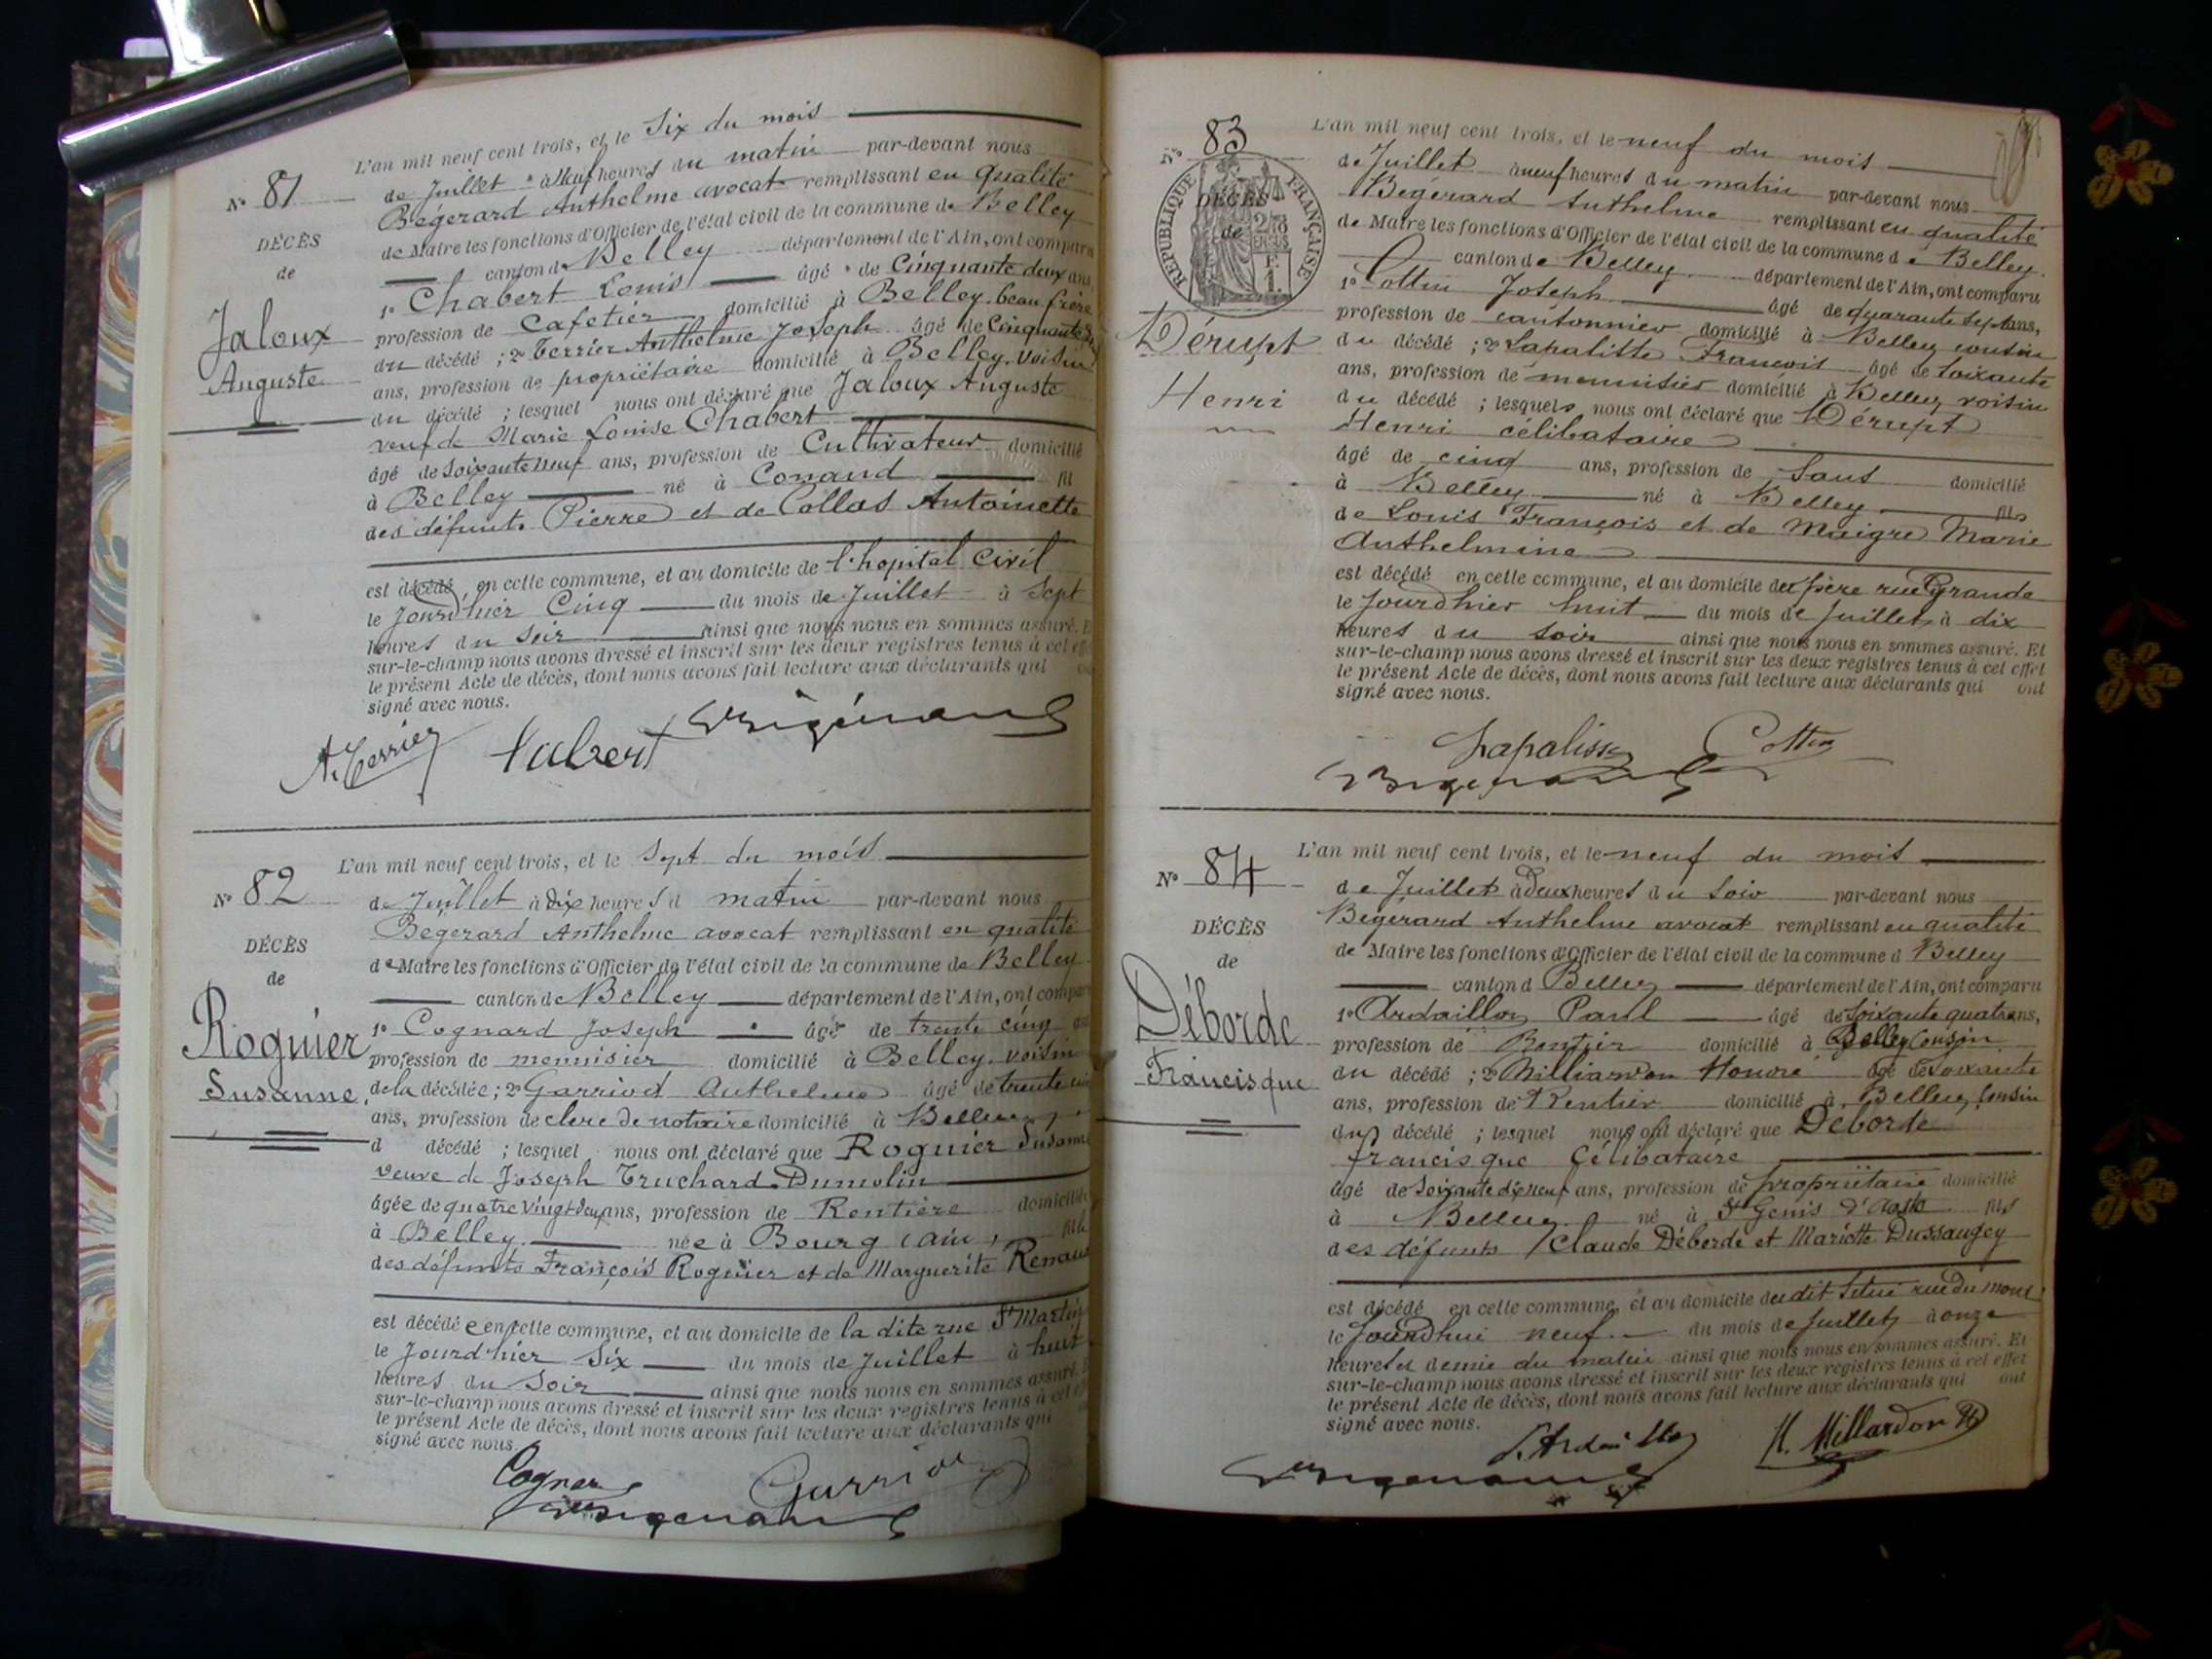 L'an mil neuf cent trois, et le Six du mois
N° 81
de Juillet à Neuf heures du matin par-devant nous
Bégerard Anthelme avocat remplissant en qualité
DÉCÈS
de Maire les fonctions d'Officier de l'état civil de la commune de Belley
de
canton de Belley département de l'Ain, ont comparu
1° Chabert Louis âgé de Cinquante deux ans,
Jaloux
profession de Cafetier domicilié à Belley. beau frère
du décédé ; 2° Terrier Anthelme Joseph âgé de Cinquante
Auguste
ans, profession de propriétaire domicilié à Belley. voisin
du décédé ; lesquel nous ont déclaré que Jaloux Auguste
veuf de Marie Louise Chabert
âgé de Soixante neuf ans, profession de Cultivateur domicilié
à Belley né à Conand fil
des défunts Pierre et de Collas Antoinette
est décédé, en cette commune, et au domicile de l'hopital Civil
le Jourd'hier Cinq du mois de Juillet à Sept
heures du Soir ainsi que nous nous en sommes assuré. E
sur-le-champ nous avons dressé et inscrit sur les deux registres tenus à cel eff
le présent Acte de décès, dont nous avons fait lecture aux déclarants qui
signé avec nous.
A. Terrier
L'an mil neuf cent trois, et le Sept du mois
N° 82
de Juillet à Dix heures d matin par-devant nous
Bégerard Anthelme avocat remplissant en qualité
DÉCÈS
de Maire les fonctions d'Officier de l'état civil de la commune de Belley
de
canton de Belley département de l'Ain, ont compar
Roguier
1° Cognard Joseph âgé de trente cinq
profession de menuisier domicilié à Belley. voisin
Susanne
de la décédée ; 2° Garriod Anthelme âgé de trente
ans, profession de clerc de notaire domicilié à Belley
d décédé ; lesquel nous ont déclaré que Roguier Susanne
veuve de Joseph Truchard Dumolin
âgée de quatre vingt deux ans, profession de Rentière domicilié
à Belley née à Bourg (ain) fille
des défunts François Roguier et de Marguerite Renaud
est décédée en cette commune, et au domicile de la dite rue St Martin
le Jourd'hier Six du mois de Juillet à huit
heures du Soir ainsi que nous nous en sommes assuré. E
sur-le-champ nous avons dressé et inscrit sur les deux registres tenus à cel eff
le présent Acte de décès, dont nous avons fait lecture aux déclarants qui
signé avec nous.
N° 83
L'an mil neuf cent trois, et le neuf du mois
de Juillet à neuf heures du matin par-devant nous
RÉPUBLIQUE FRANÇAISE
DÉCÈS
Bégerard Anthelme remplissant en qualité
de
de Maire les fonctions d'Officier de l'état civil de la commune de Belley
canton de Belley département de l'Ain, ont comparu
1° Cottin Joseph âgé de quarante sept ans,
profession de cantonnier domicilié à Belley cousin
Dérupt
du décédé ; 2° Lapalisse François âgé de Soixante
ans, profession de menuisier domicilié à Belley voisin
Henri
du décédé ; lesquels nous ont déclaré que Dérupt
Henri célibataire
âgé de cinq ans, profession de Sans domicilié
à Belley né à Belley fils
de Louis François et de Maigre Marie
Anthelmine
est décédé en cette commune, et au domicile du père rue Grande
le Jourd'hier huit du mois de Juillet, à dix
heures du soir ainsi que nous nous en sommes assuré. Et
sur-le-champ nous avons dressé et inscrit sur les deux registres tenus à cel effet
le présent Acte de décès, dont nous avons fait lecture aux déclarants qui ont
signé avec nous.
Lapalisse Cottin
L'an mil neuf cent trois, et le neuf du mois
N° 84
de Juillet à Deux heures du Soir par-devant nous
Bégerard Anthelme avocat remplissant en qualité
DÉCÈS
de Maire les fonctions d'Officier de l'état civil de la commune d Belley
de
canton d Belley département de l'Ain, ont comparu
Déborde
1° Ardaillon Paul âgé de Soixante quatre ans,
profession de Rentier domicilié à Belley Cousin
Francisque
du décédé ; 2° Milliardon Honoré âgé de Soixante
ans, profession de Rentier domicilié à Belley, Cousin
du décédé ; lesquel nous ont déclaré que Déborde
francisque Célibataire
âgé de Soixante dix neuf ans, profession de propriétaire domicilié
à Belley né à St Genis d'Aoste fils
des défunts Claude Déborde et Mariette Dussaugey
est décédé en cette commune, et au domicile du dit Situé rue du
le Jourd'hui neuf du mois de Juillet, à onze
heures et demie du matin ainsi que nous nous en sommes assuré. Et
sur-le-champ nous avons dressé et inscrit sur les deux registres tenus à cel effet
le présent Acte de décès, dont nous avons fait lecture aux déclarants qui ont
signé avec nous.
P. Ardaillon H. Millardon